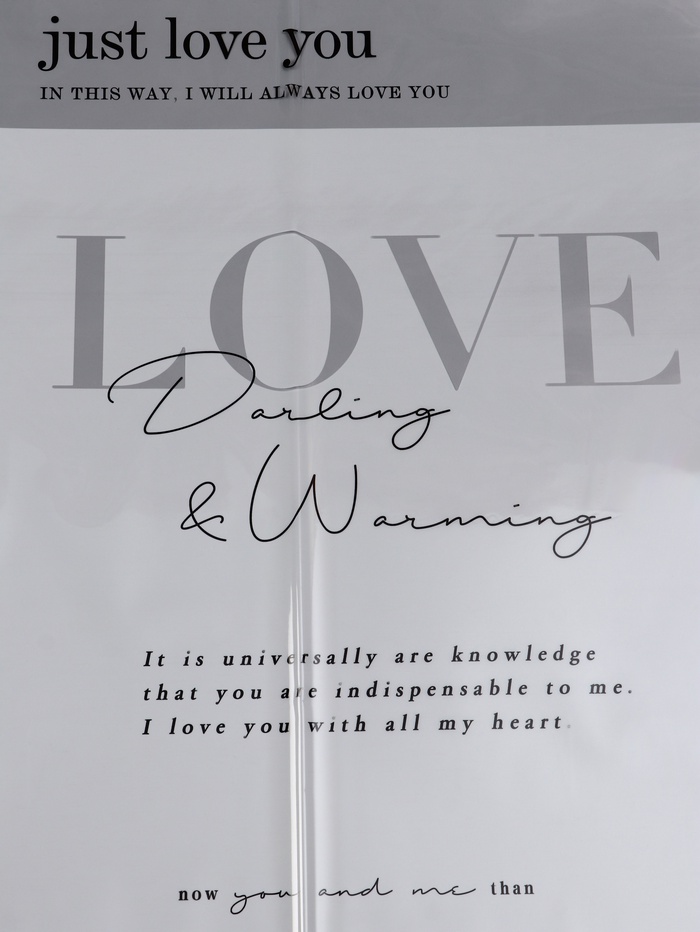 just love you
IN THIS WAY, I WILL ALWAYS LOVE YOU
LOVE
Darling
& Warming
It is universally are knowledge
that you are indispensable to me.
I love you with all my heart.
now you and me than